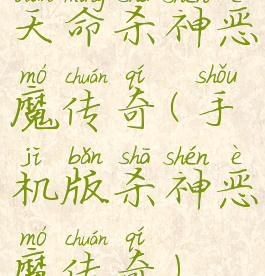 tiān mìng shā shén è
天命杀神恶
mó chuán qí shǒu
魔传奇(手
jī bǎn shā shén è
机版杀神恶
mó chuán qí
魔传奇)